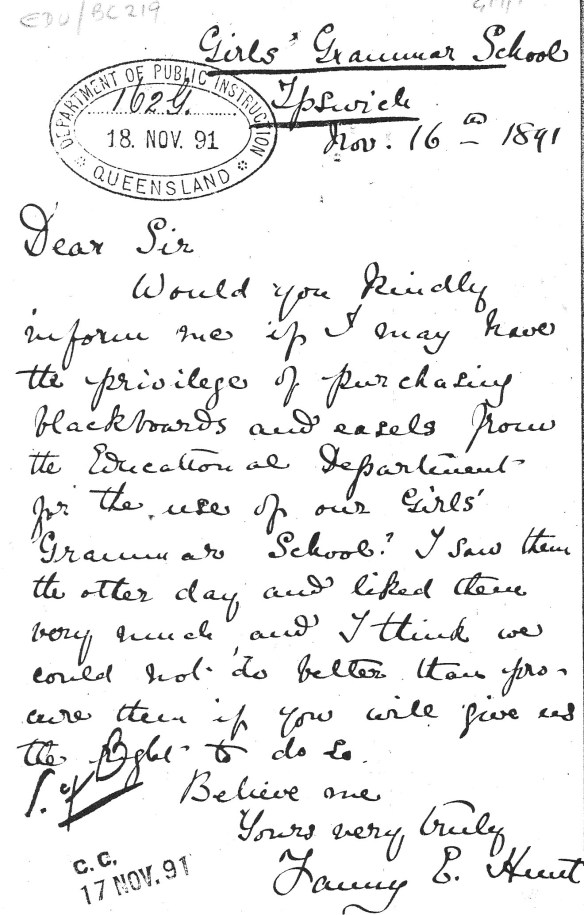 EDU/BC219
Girls' Grammar School
DEPARTMENT OF PUBLIC INSTRUCTION
Ipswich
18. NOV. 91
Nov. 16th 1891
QUEENSLAND
Dear Sir
Would you kindly
inform me if I may have
the privilege of purchasing
blackboards and easels from
the Educational Department
for the use of our Girls'
Grammar School? I saw them
the other day and liked them
very much, and I think we
could not do better than pro-
cure them if you will give us
the right to do so.
Believe me
Yours very truly
Fanny E. Hunt
C.C.
17 NOV. 91